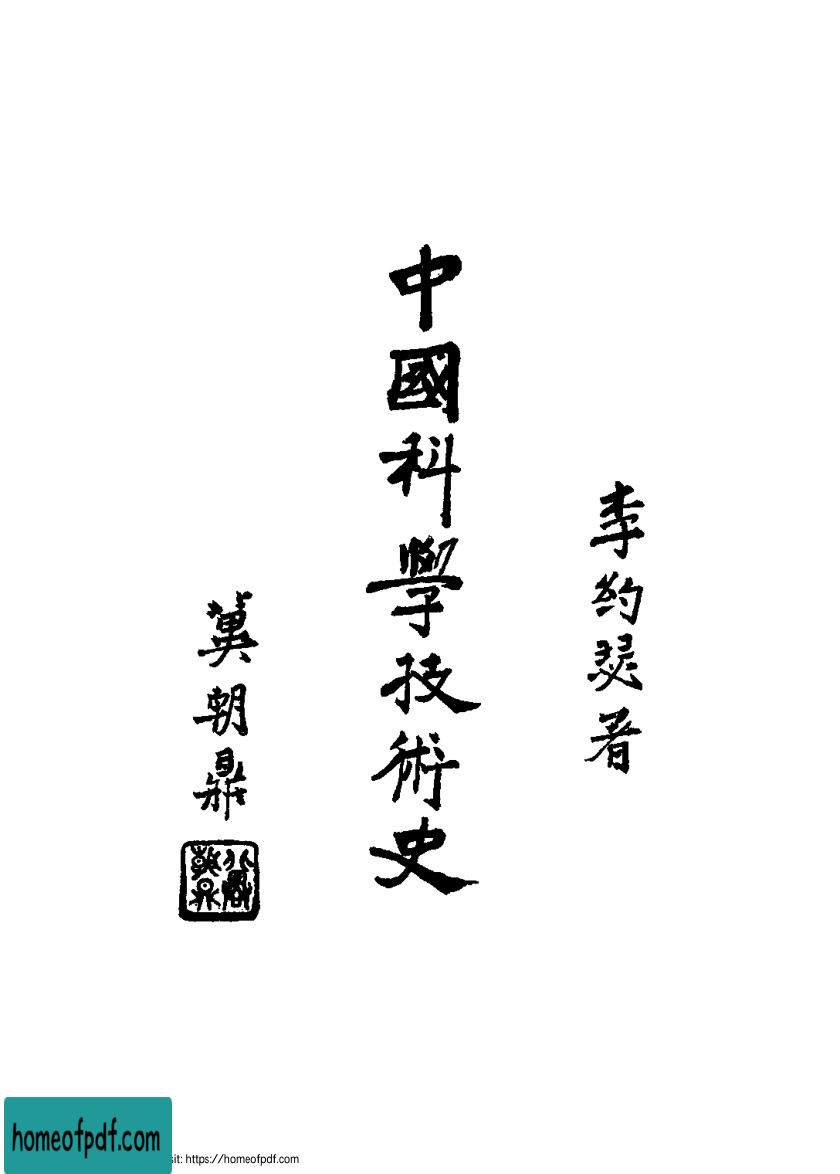 李约瑟著
中國科學技術史
冀朝鼎
homeofpdf.com
sit: https://homeofpdf.com